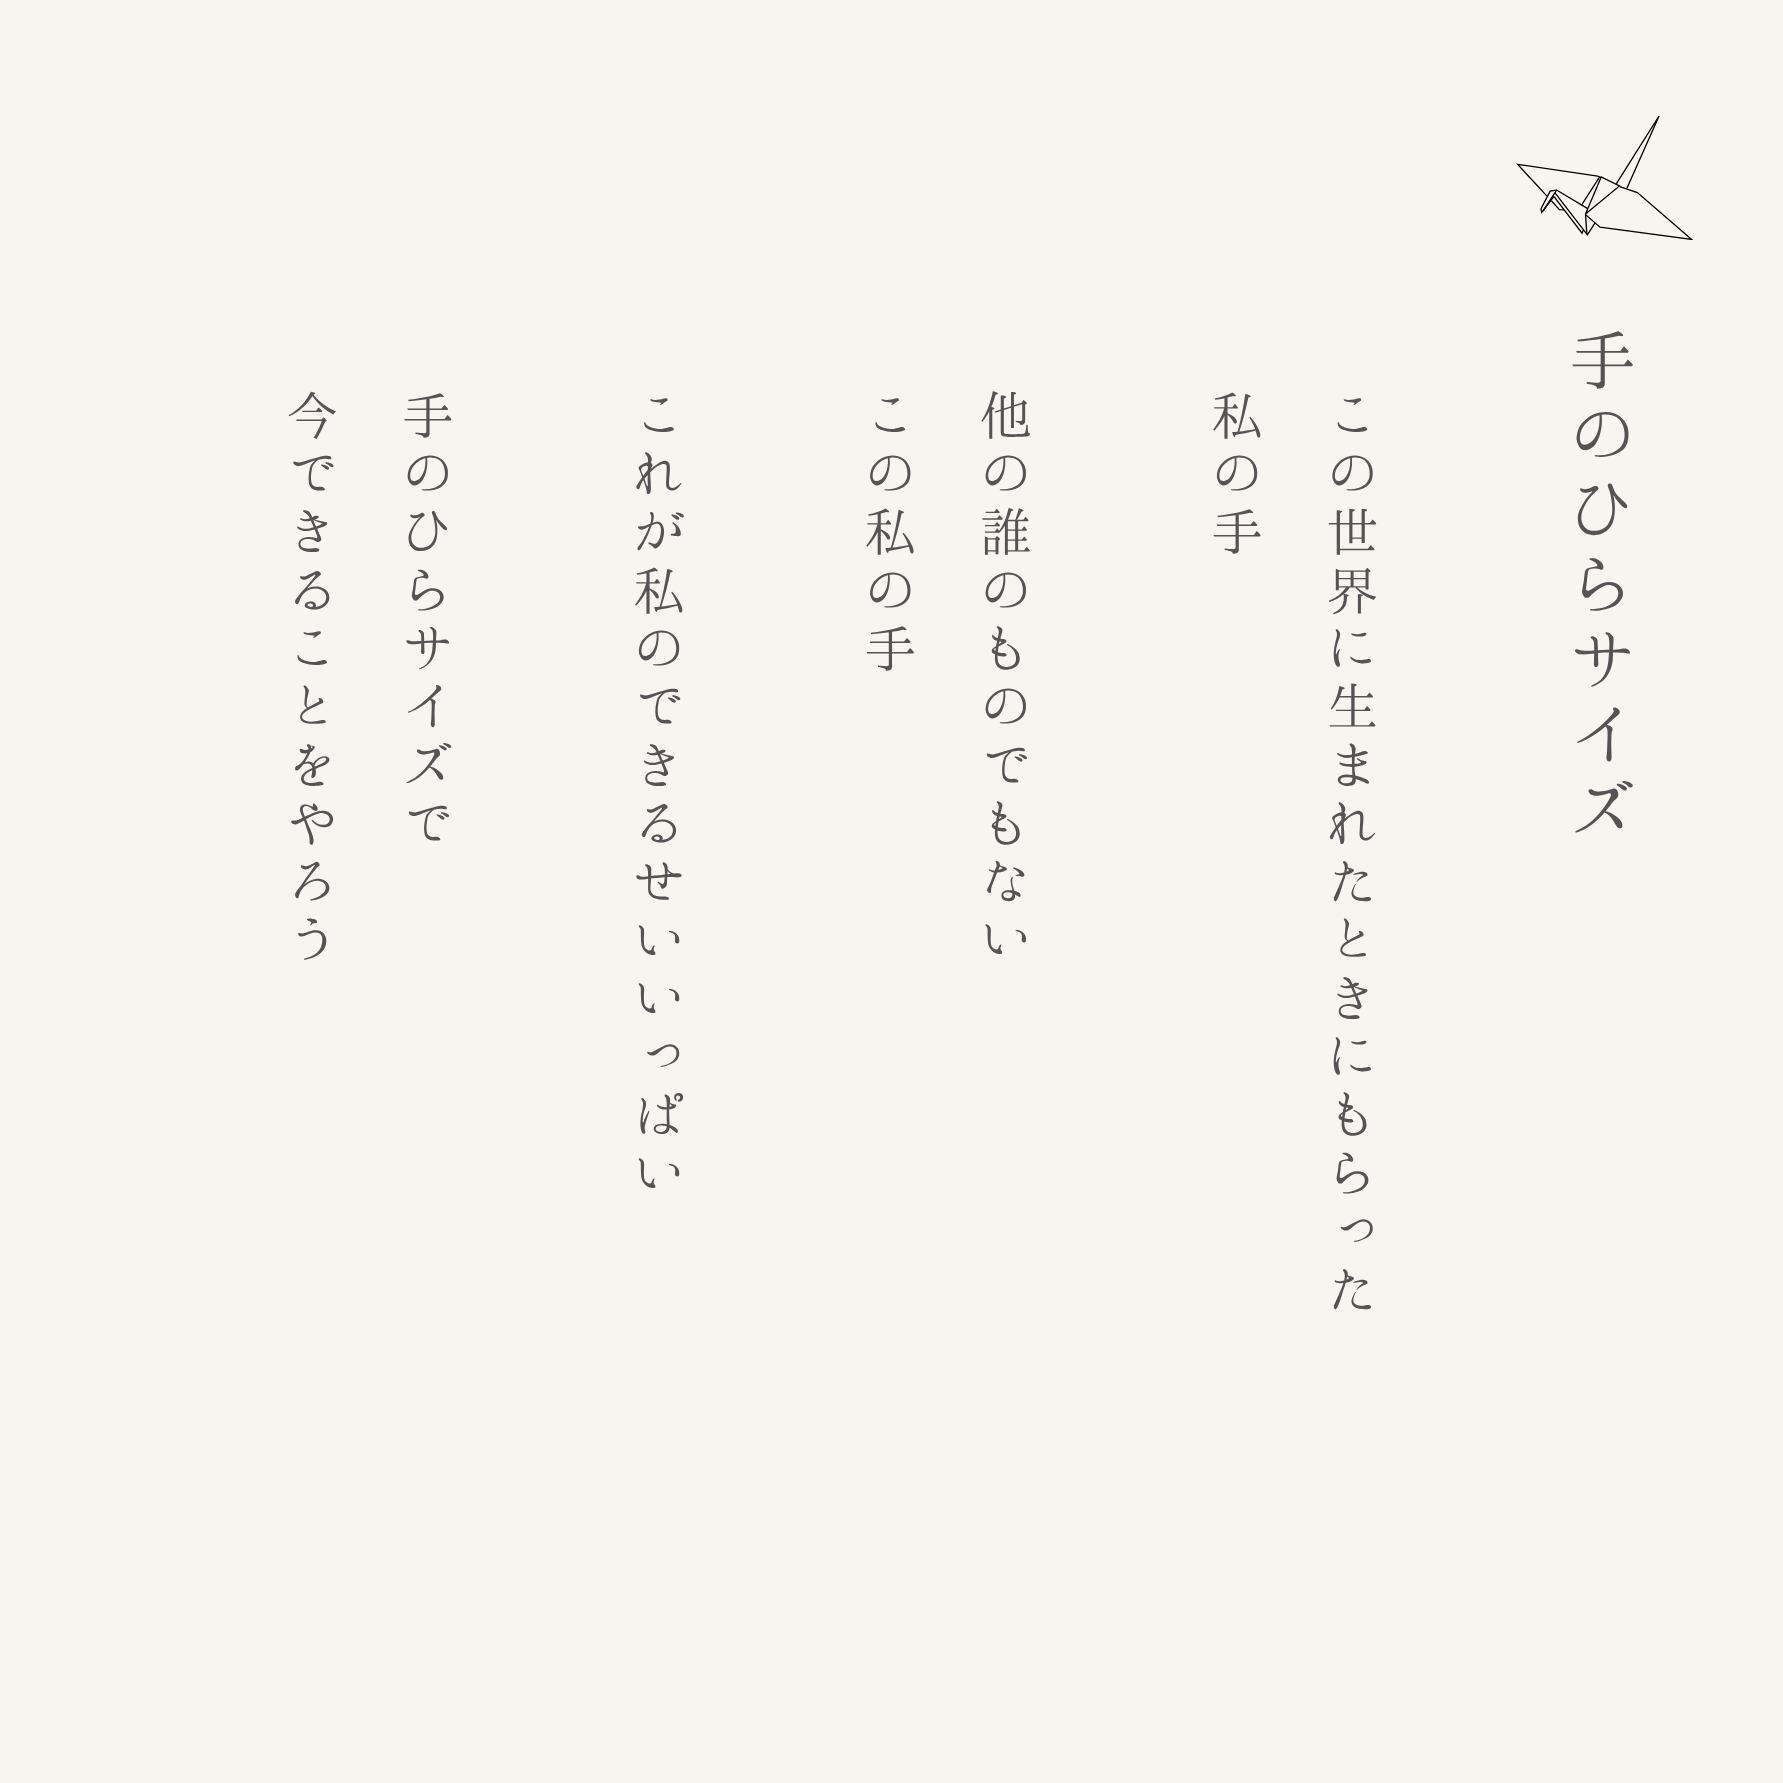 手のひらサイズ
この世界に生まれたときにもらった
私の手
他の誰のものでもない
この私の手
これが私のできるせいいっぱい
手のひらサイズで
今できることをやろう